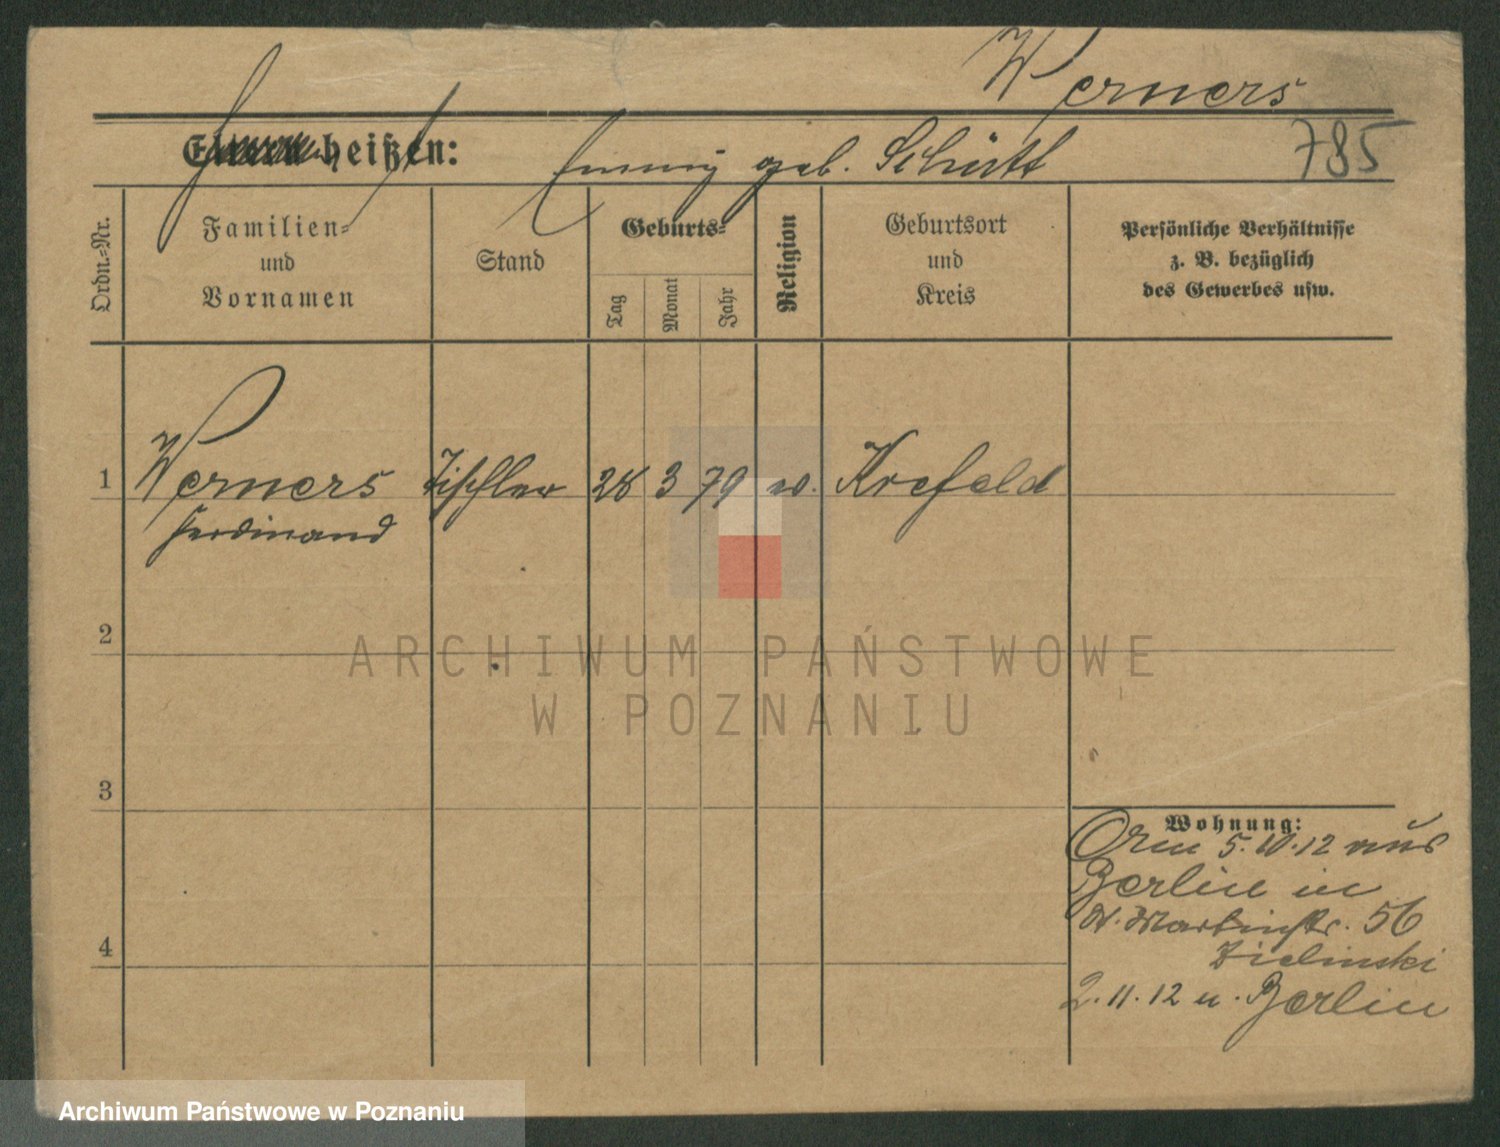 Werners
785
heißen: Emmy geb. Schütt
Ordn.-Nr.
Familien-
und
Vornamen
Stand
Geburts-
Tag
Monat
Jahr
Religion
Geburtsort
und
Kreis
Persönliche Verhältnisse
z. B. bezüglich
des Gewerbes usw.
1 Werners Tischler 28 3 79 Krefeld
Ferdinand
2
3
4
Wohnung:
5.10.12 aus
Berlin in
St. Martinstr. 56
Zielinski
2.11.12 n. Berlin
ARCHIWUM PAŃSTWOWE
W POZNANIU
Archiwum Państwowe w Poznaniu